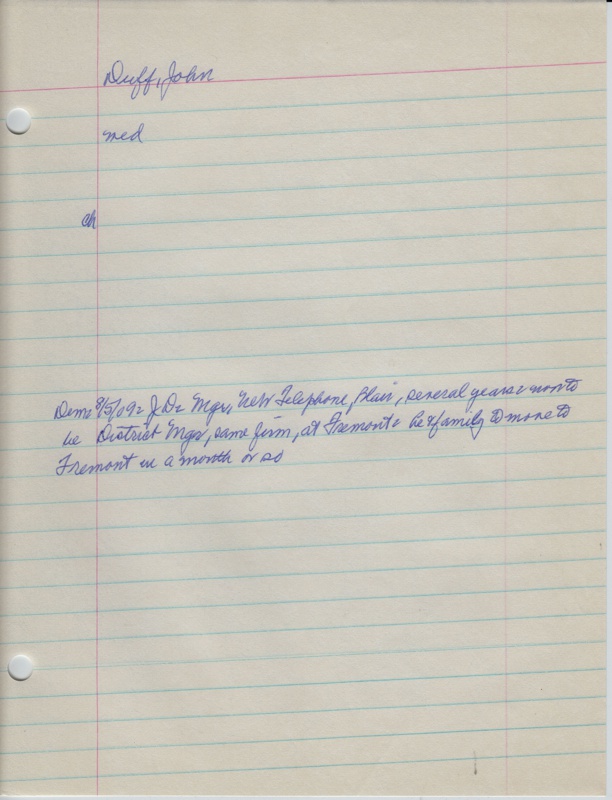 Duff, John
med
ch
Dem: 8/5/09 = J.D. = Mgr, Nebr Telephone, Blair, several years = now to
be District Mgr, same firm, at Fremont = he & family to move to
Fremont in a month or so